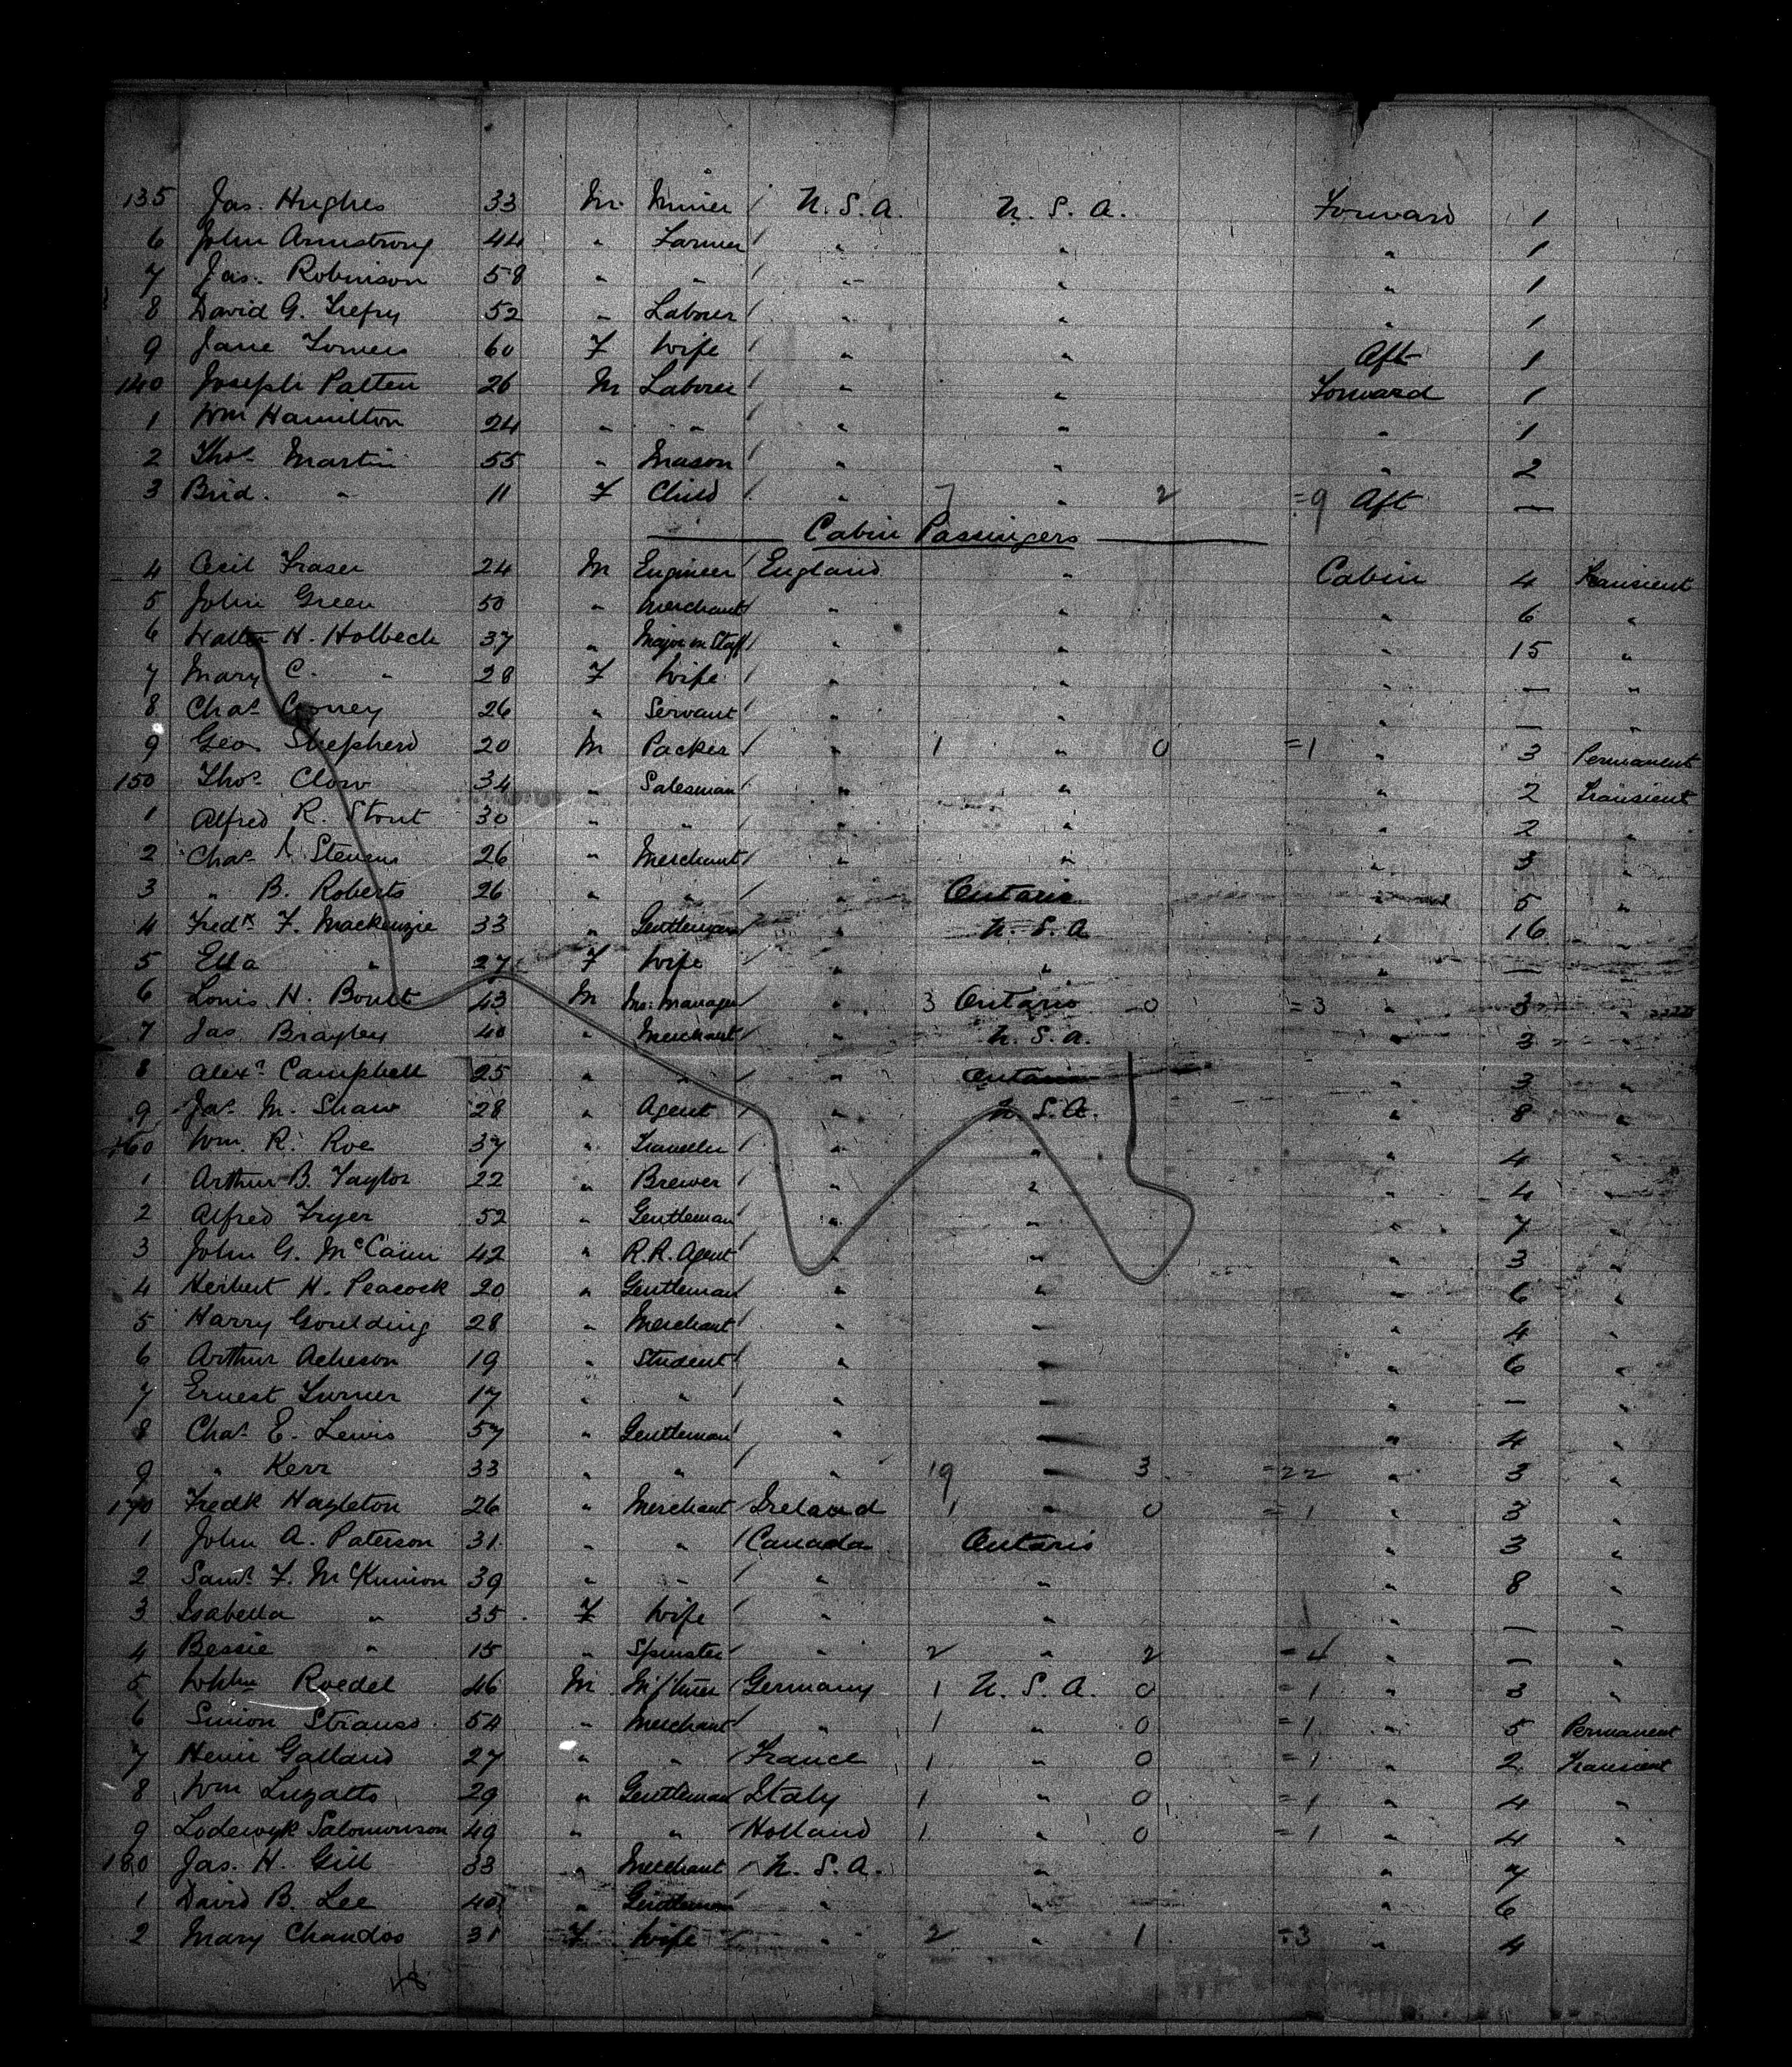 135 Jas. Hughes 33 M. Miner / U.S.A. U.S.A. Forward 1
6 John Armstrong 44 " Farmer / " " " 1
7 Jas. Robinson 58 " " / " " " 1
8 David G. Trefry 52 " Laborer / " " " 1
9 Jane 60 F Wife / " " Aft 1
140 Joseph Patten 26 M Laborer / " " Forward 1
1 Wm Hamilton 24 " " / " " " 1
2 Thos. Martin 55 " Mason / " " " 2
3 Brid. " 11 F Child / " 7 " 2 =9 Aft —
Cabin Passengers
4 Cecil Fraser 24 M Engineer / England " Cabin 4 Transient
5 John Green 50 " Merchant / " " " 6 "
6 Walter H. Holbech 37 " Major on Staff / " " " 15 "
7 Mary C. " 28 F Wife / " " " — "
8 Chas. 26 " Servant / " " " — "
9 Geo. Shepherd 20 M Packer / " 1 " 0 =1 " 3 Permanent
150 Thos. Clow 34 " Salesman / " " " 2 Transient
1 Alfred R. Stout 30 " " / " " " 2 "
2 Chas. Stevens 26 " Merchant / " " " 3 "
3 " B. Roberts 26 " " / " Ontario " 5 "
4 Fredk F. Mackenzie 33 " Gentleman / " U.S.A " 16 "
5 Ella " 27 F Wife / " " " — "
6 Louis H. Boult 43 M Ins. Manager / " 3 Ontario 0 =3 " 3 "
7 Jas. Brayley 40 " Merchant / " U.S.A. " 3 "
8 Alexr. Campbell 25 " " / " Ontario " 3 "
9 Jas. M. Shaw 28 " Agent / " U.S.A. " 8 "
160 Wm. R. Roe 37 " Traveller / " " " 4 "
1 Arthur B. Taylor 22 " Brewer / " " " 4 "
2 Alfred Fryer 52 " Gentleman / " " " 7 "
3 John G. McCann 42 " R.R. Agent / " " " 3 "
4 Herbert H. Peacock 20 " Gentleman / " " " 6 "
5 Harry Goulding 28 " Merchant / " " " 4 "
6 Arthur Acheson 19 " Student / " " " 6 "
7 Ernest Turner 17 " " / " " " — "
8 Chas. E. Lewis 57 " Gentleman / " " " 4 "
9 " Kerr 33 " " / " 19 " 3 =22 " 3 "
170 Fredk Hazleton 26 " Merchant / Ireland 1 " 0 =1 " 3 "
1 John A. Paterson 31 " " / Canada Ontario " 3 "
2 Saml. F. McKinnon 39 " " / " " " 8 "
3 Isabella " 35 F Wife / " " " — "
4 Bessie " 15 " Spinster / " 2 " 2 =4 " — "
5 Roedel 46 M / Germany 1 U.S.A. 0 =1 " 3 "
6 Simon Strauss 54 " Merchant / " 1 " 0 =1 " 5 Permanent
7 Henri Galland 27 " " / France 1 " 0 =1 " 2 Transient
8 Wm Luzatto 29 " Gentleman / Italy 1 " 0 =1 " 4 "
9 Lodewyk Salomonson 49 " " / Holland 1 " 0 =1 " 4 "
180 Jas. H. Gill 33 " Merchant / U.S.A. " " 7
1 David B. Lee 40 " Gentleman / " " " 6
2 Mary Chandos 31 F Wife / " 2 " 1 =3 " 4
48